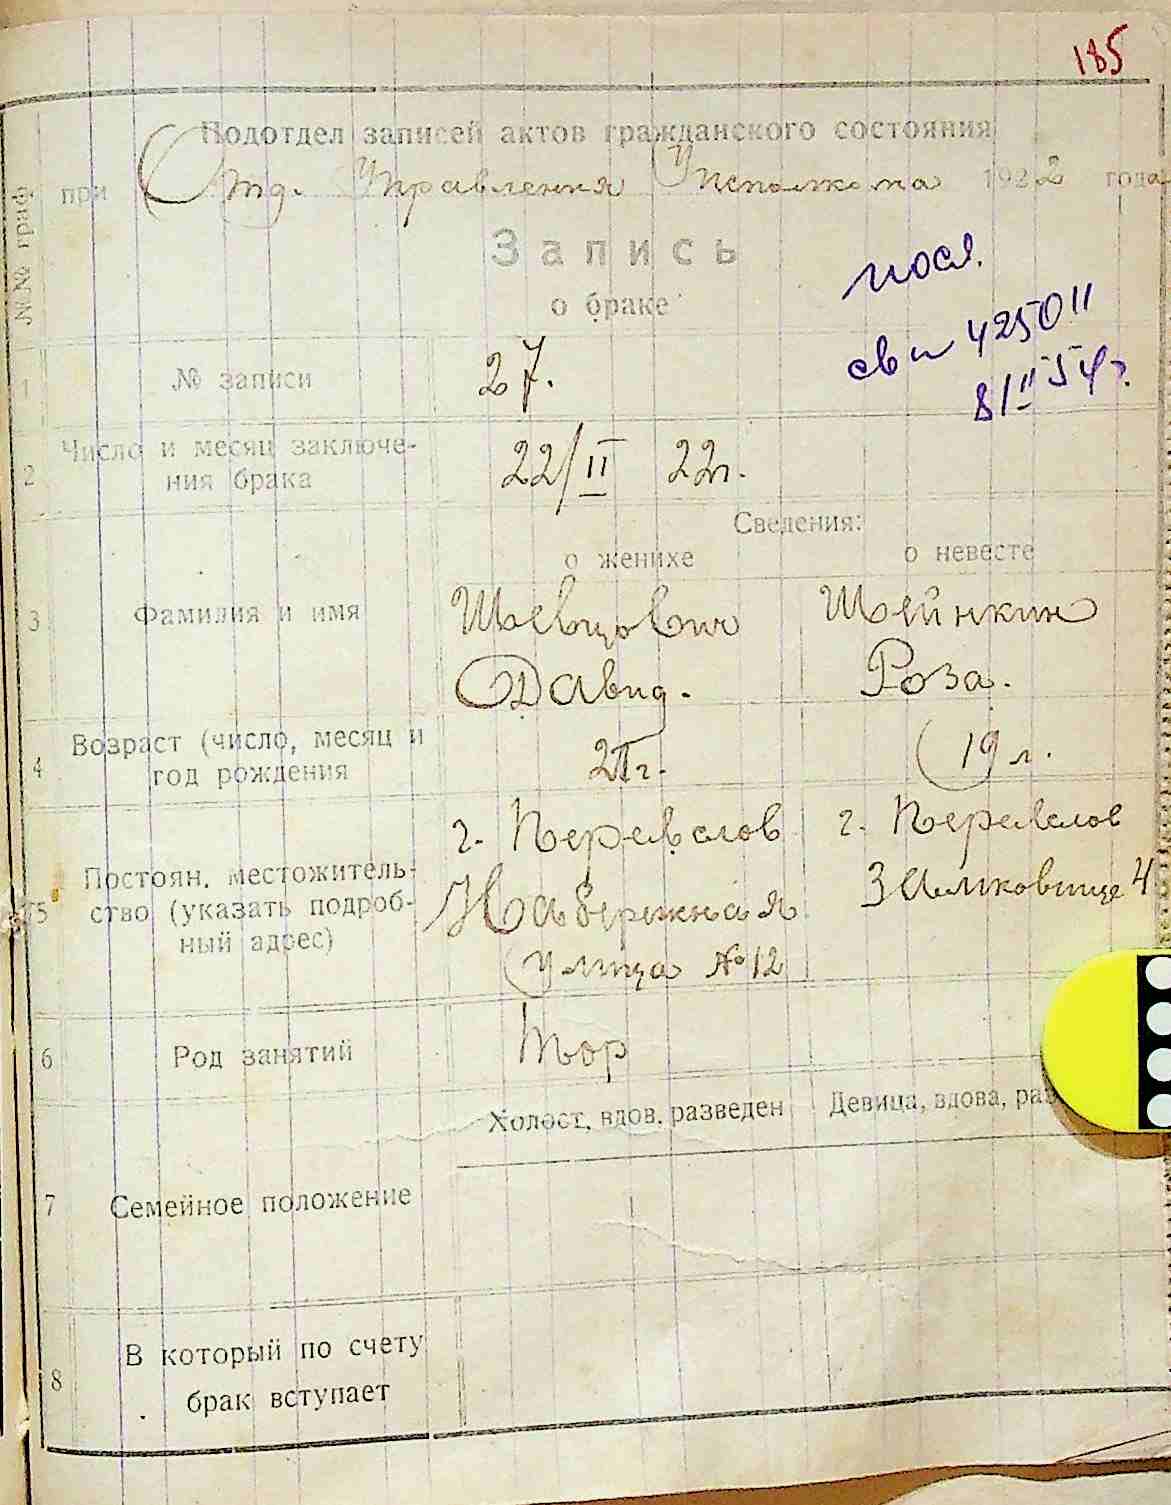 185
Подотдел записей актов гражданского состояния
при Отд. Управления Исполкома 1922 года
№№ граф.
Запись
о браке
посл.
св 425011
8/II 54г.
1 № записи 27.
2 Число и месяц заключе-
ния брака 22/II 22г.
Сведения:
о женихе о невесте
3 Фамилия и имя Шевцович Шейнкин
Давид. Роза.
4 Возраст (число, месяц и
год рождения 19 л.
г. Перевалов г. Перевалов
5 Постоян. местожитель-
ство (указать подроб-
ный адрес)
Набережная
улица №12
6 Род занятий Тор
Холост, вдов, разведен Девица, вдова, раз
7 Семейное положение
8 В который по счету
брак вступает